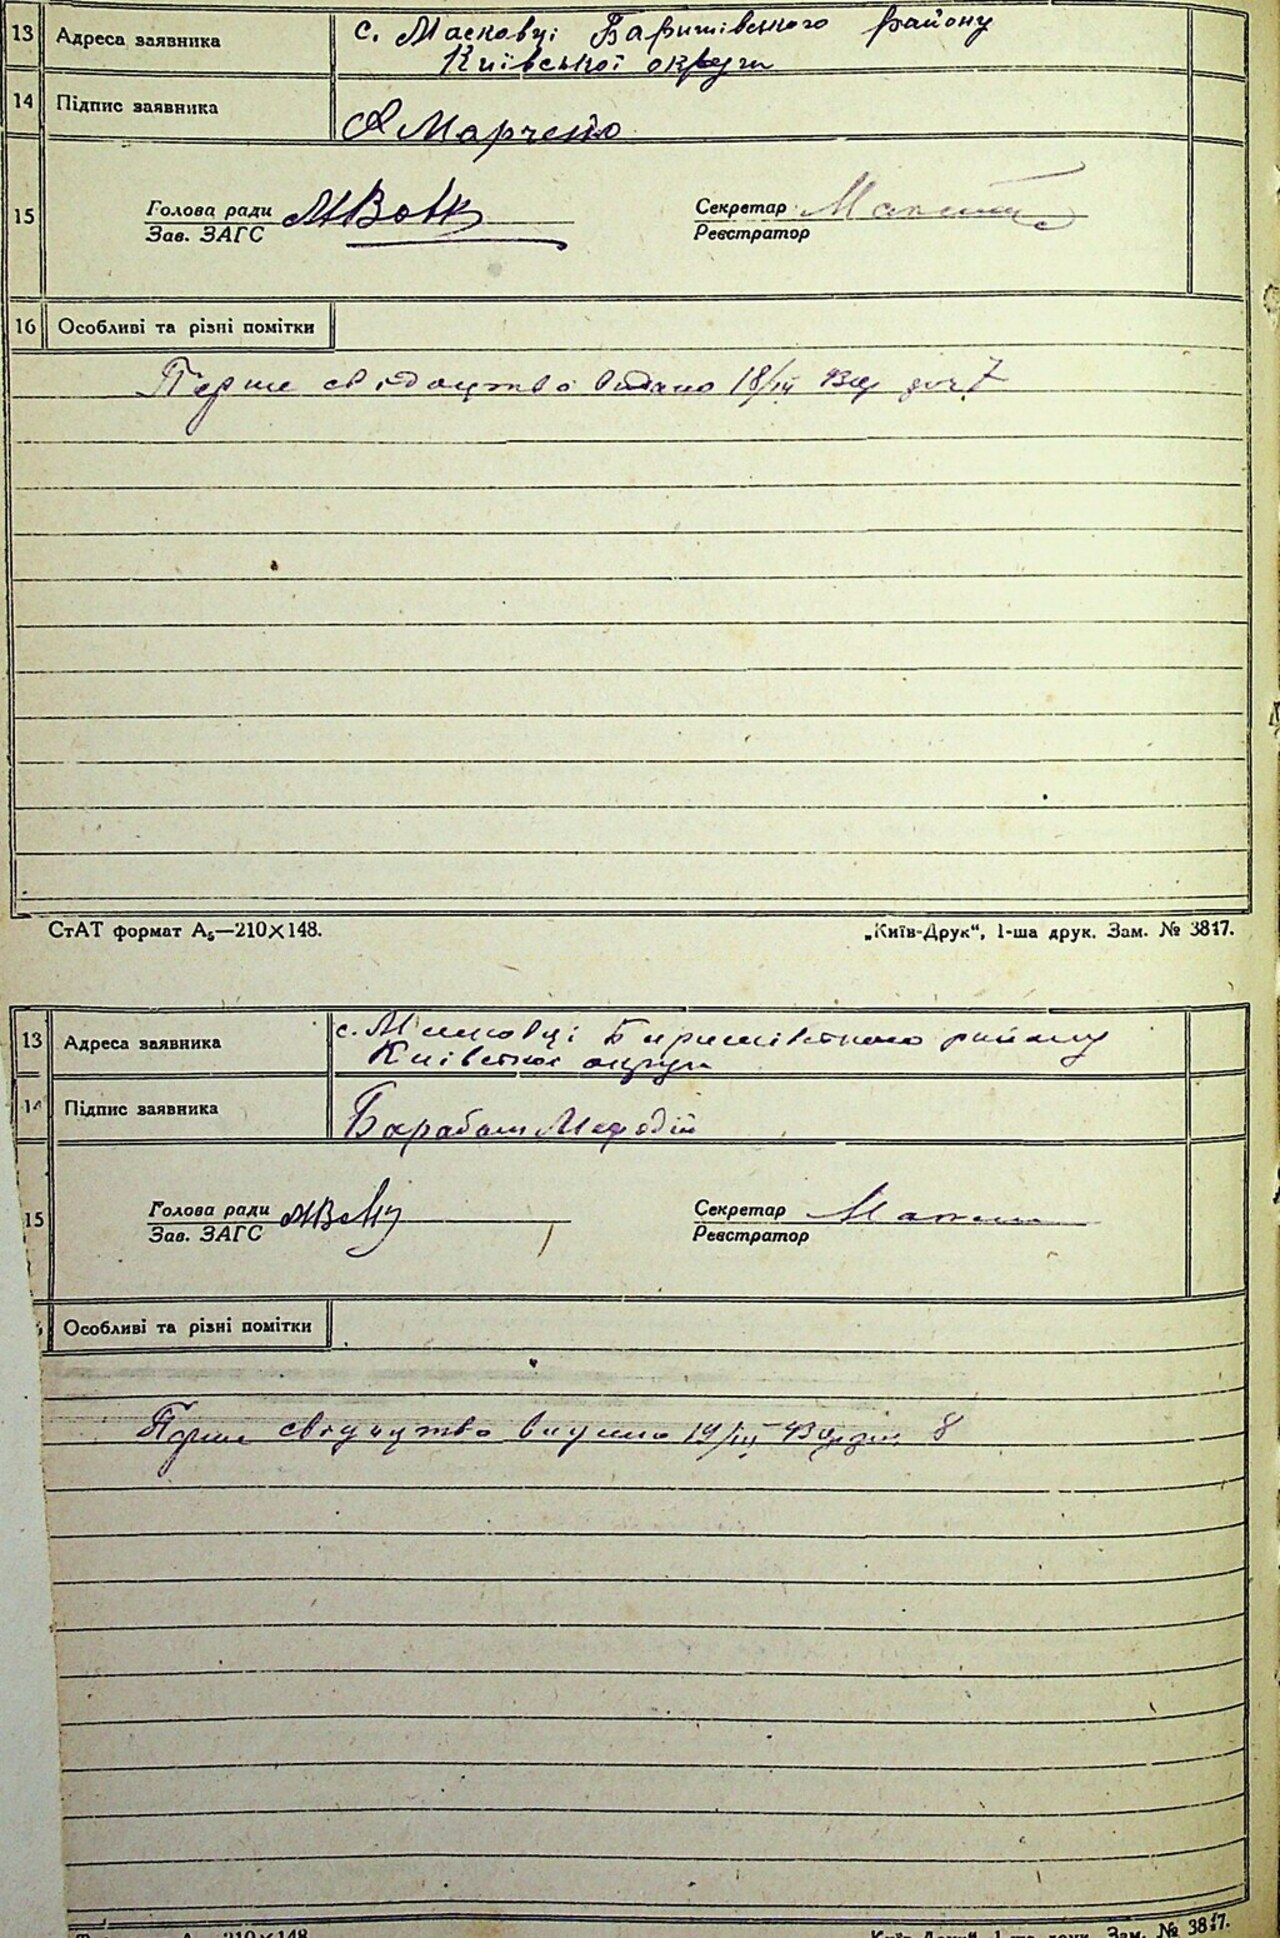 13 Адреса заявника с. Масковці Баришівського району
Київської округи
14 Підпис заявника А Марченко
15 Голова ради МВовк Секретар
Зав. ЗАГС Реєстратор
16 Особливі та різні помітки
Перше свідоцтво видано 18/III 43 р. за № 7
СтАТ формат А₅—210×148. „Київ-Друк“, 1-ша друк. Зам. № 3817.
13 Адреса заявника с. Масковці Баришівського району
Київської округи
14 Підпис заявника Барабаш Мефодій
15 Голова ради МВовк Секретар
Зав. ЗАГС Реєстратор
Особливі та різні помітки
Перше свідоцтво видано 19/III 43 р. за 8
210×148 Київ-Друк“, 1-ша друк. Зам. № 3817.